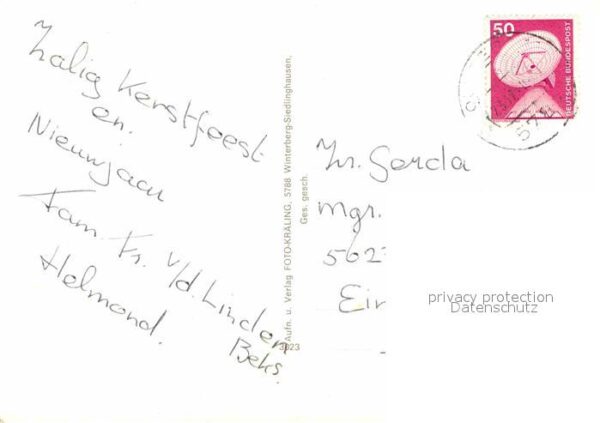 Zalig Kerstfeest
en.
Nieuwjaar
Fam. Fr. v/d. Linden
Beks.
Helmond.
Aufn. u. Verlag FOTO-KRÄLING, 5788 Winterberg-Siedlinghausen,
Ges. gesch.
3023
50
DEUTSCHE BUNDESPOST
Zr. Gerda
Mgr.
562
Ein
privacy protection
Datenschutz